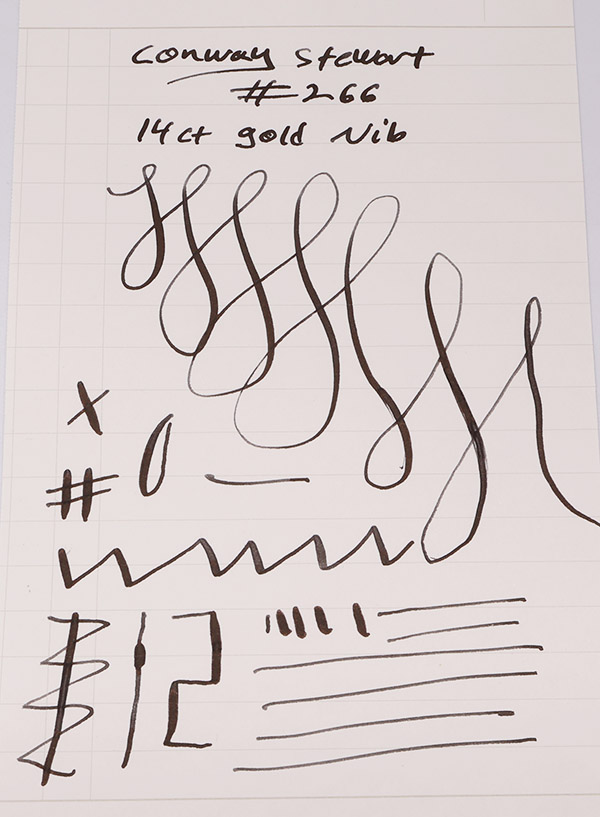 Conway Stewart
#266
14ct gold Nib